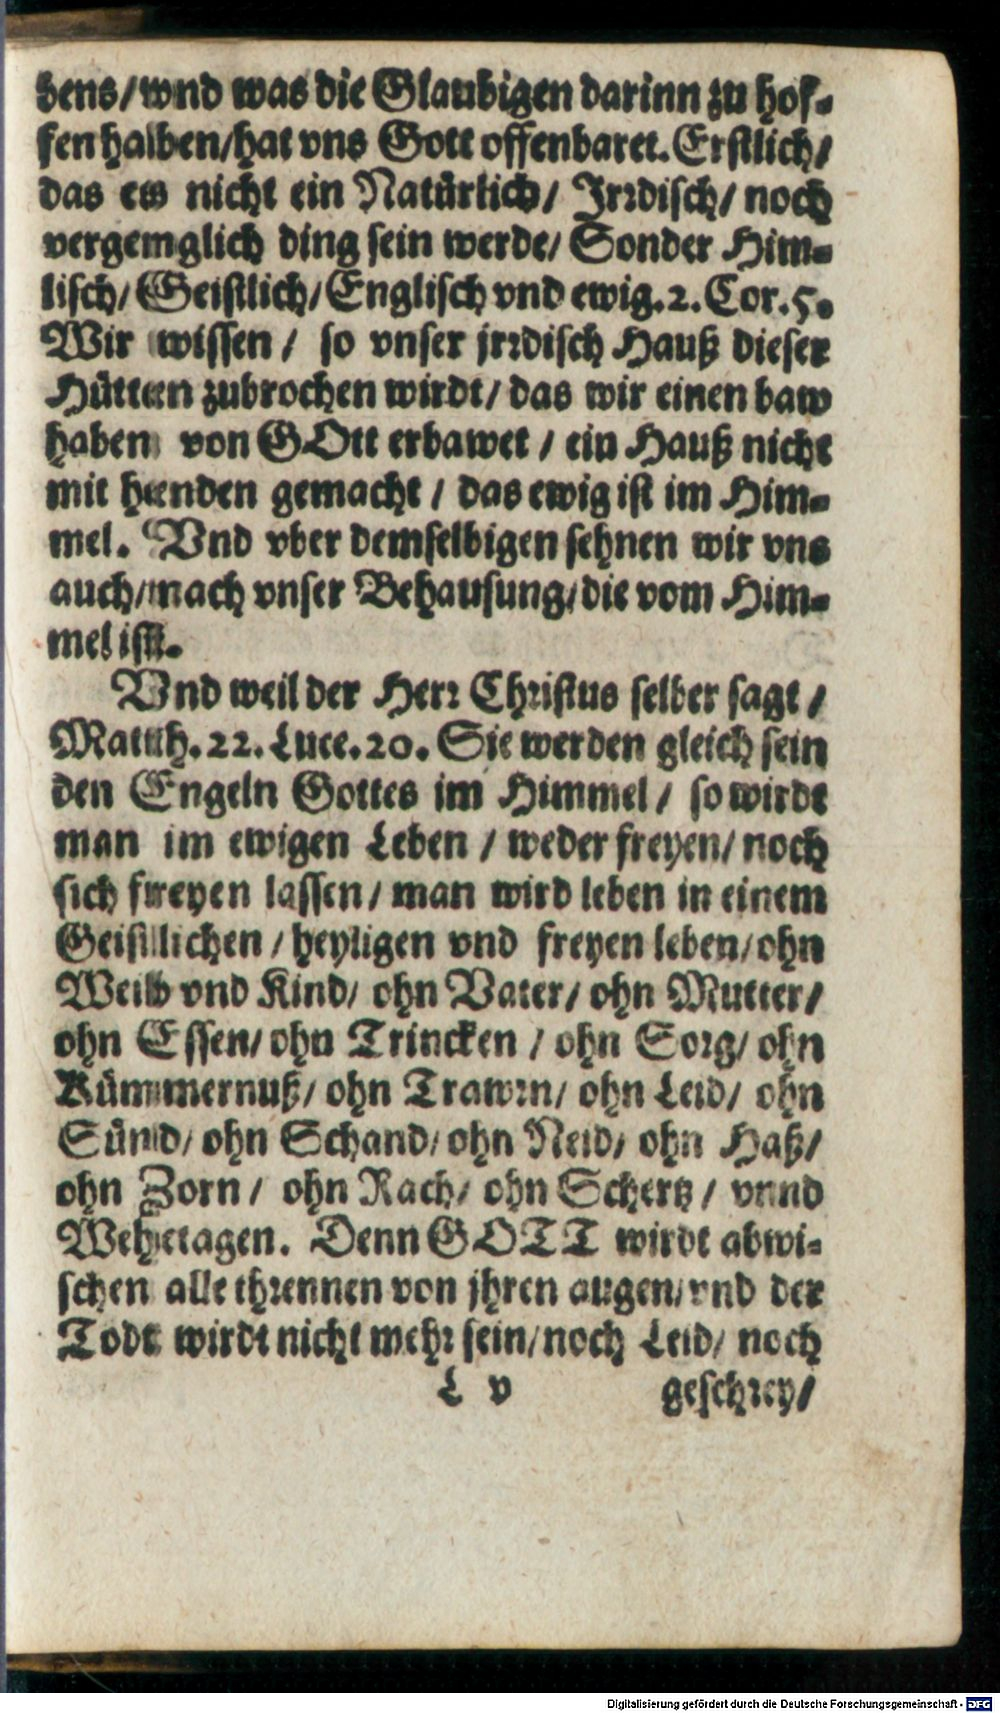 bens/ vnd was die Glaubigen darinn zu hof-
fen haben/ hat vns Gott offenbaret. Erstlich/
das es nicht ein Natürlich/ Irrdisch/ noch
vergenglich ding sein werde/ Sonder Him-
lisch/ Geistlich/ Englisch vnd ewig. 2. Cor. 5.
Wir wissen/ so vnser jrrdisch Hauß dieser
Hütten zubrochen wirdt/ das wir einen baw
haben von GOtt erbawet/ ein Hauß nicht
mit henden gemacht/ das ewig ist im Him-
mel. Vnd vber demselbigen sehnen wir vns
auch/ nach vnser Behausung/ die vom Him-
mel ist.
Vnd weil der Herr Christus selber sagt/
Matth. 22. Luce. 20. Sie werden gleich sein
den Engeln Gottes im Himmel/ so wirdt
man im ewigen Leben/ weder freyen/ noch
sich freyen lassen/ man wird leben in einem
Geistlichen/ heyligen vnd freyen leben/ ohn
Weib vnd Kind/ ohn Vater/ ohn Mutter/
ohn Essen/ ohn Trincken/ ohn Sorg/ ohn
Kümmernuß/ ohn Trawrn/ ohn Leid/ ohn
Sünd/ ohn Schand/ ohn Neid/ ohn Haß/
ohn Zorn/ ohn Rach/ ohn Schertz/ vnnd
Wehetagen. Denn GOTT wirdt abwi-
schen alle threnen von jhren augen/ vnd der
Todt wirdt nicht mehr sein/ noch Leid/ noch
L v geschrey/
Digitalisierung gefördert durch die Deutsche Forschungsgemeinschaft - DFG